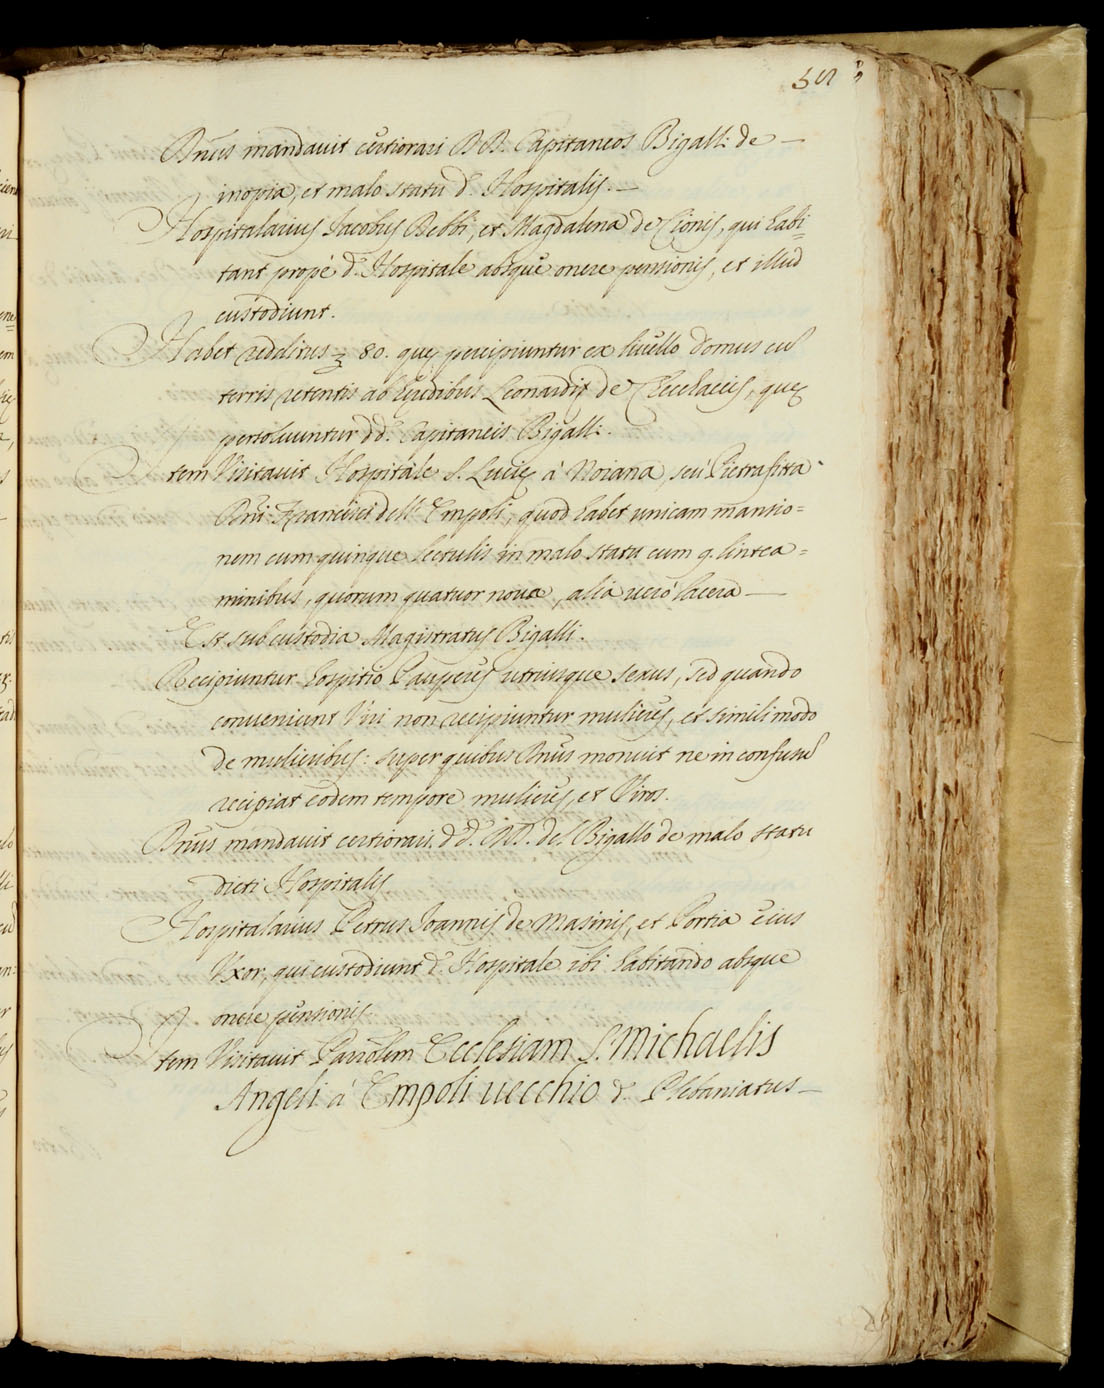 Dn̄us mandauit certiorari DD. Capitaneos Bigalli: de —
inopia, et malo statu dⁱ Hospitalis. —
Hospitalarius Jacobus Bebbi, et Magdalena de Cionis, qui habi=
tant propè dᵐ Hospitale absque onere pensionis, et illud
custodiunt.
Habet redditus 80. quę percipiuntur ex liuello domus cū
terris retentis ab hęredibus Leonardi de, quę
persoluuntur dd. Capitaneis Bigalli:
Item Visitauit Hospitale S. Lucię à Noiana, seù Pietrafitta
Dn̄i Francisci dell' Empoli, quod habet unicam mansio=
nem cum quinque lectulis in malo statu cum 9. lintea=
minibus, quorum quatuor noua, alia uerò lacera —
Est sub custodia Magistratus Bigalli.
Recipiuntur hospitio Pauperes utriusque sexus, sed quando
conueniunt Viri non recipiuntur mulieres, et simili modo
de mulieribus: super quibus Dn̄us monuit ne in confusū
recipiat eodem tempore mulieres, et Viros.
Dn̄us mandauit certiorari dd. del Bigallo de malo statu
dicti Hospitalis.
Hospitalarius Petrus Joannis de Masinis, et Portia eius
Vxor, qui custodiunt dᵐ Hospitale ibi habitando absque
onere pensionis.
Item Visitauit Parōlem Ecclesiam S. Michaelis
Angeli à Empoli uecchio dⁱ Plebaniatus —